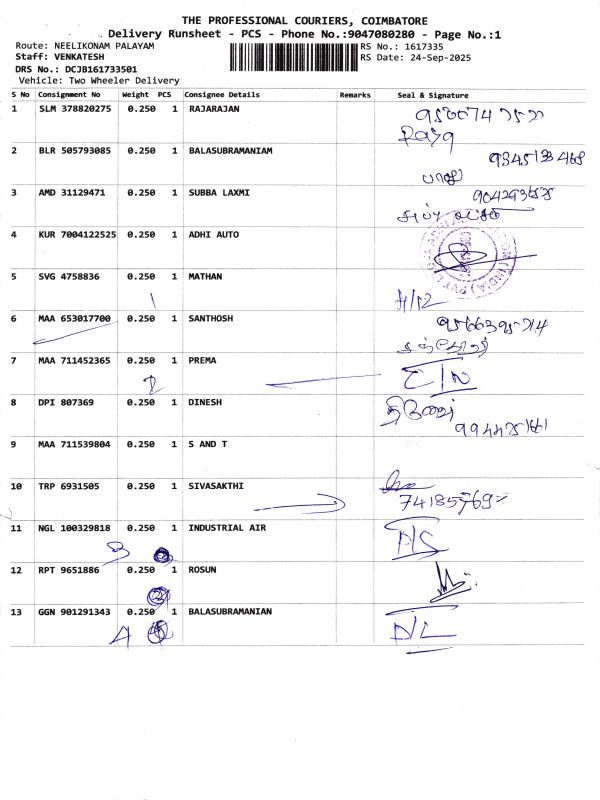 THE PROFESSIONAL COURIERS, COIMBATORE
Delivery Runsheet - PCS - Phone No.:9047080280 - Page No.:1
Route: NEELIKONAM PALAYAM RS No.: 1617335
Staff: VENKATESH RS Date: 24-Sep-2025
DRS No.: DCJB161733501
Vehicle: Two Wheeler Delivery
S No Consignment No Weight PCS Consignee Details Remarks Seal & Signature
1 SLM 378820275 0.250 1 RAJARAJAN
2 BLR 505793085 0.250 1 BALASUBRAMANIAM
பாலு
3 AMD 31129471 0.250 1 SUBBA LAXMI
4 KUR 7004122525 0.250 1 ADHI AUTO
5 SVG 4758836 0.250 1 MATHAN
6 MAA 653017700 0.250 1 SANTHOSH
7 MAA 711452365 0.250 1 PREMA
8 DPI 807369 0.250 1 DINESH
9 MAA 711539804 0.250 1 S AND T
10 TRP 6931505 0.250 1 SIVASAKTHI
11 NGL 100329818 0.250 1 INDUSTRIAL AIR
3
12 RPT 9651886 0.250 1 ROSUN
13 GGN 901291343 0.250 1 BALASUBRAMANIAN
4 D/L